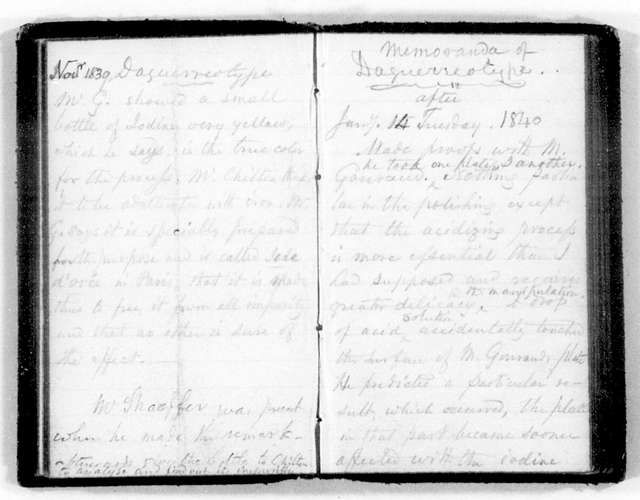 Nov. 1839 Daguerreotype
Mr G. showed a small
bottle of Iodine very yellow,
which he says is the true color
for the process. Mr Chilton has
it to be adulterated with iron. Mr
G. says it is specially prepared
for the purpose and is called Iode
d'orée in Paris, that it is made
thus to free it from all impurities
and that no other is sure of
the effect.
Mr Shaeffer was present
when he made the remark
Memoranda of
Daguerreotype.
after
Jany. 14 Tuesday. 1840
Made proofs with M.
he took one plate & I another.
Gouraud. Nothing particu
lar in the polishing except
that the acidizing process
is more essential than I
had supposed and requires
greater delicacy in the manipulation.
a drop
of acid solution accidentally touched
the surface of M. Gouraud's plate
He predicted a particular re-
sult, which occurred, the plate
in that part became sooner
affected with the iodine